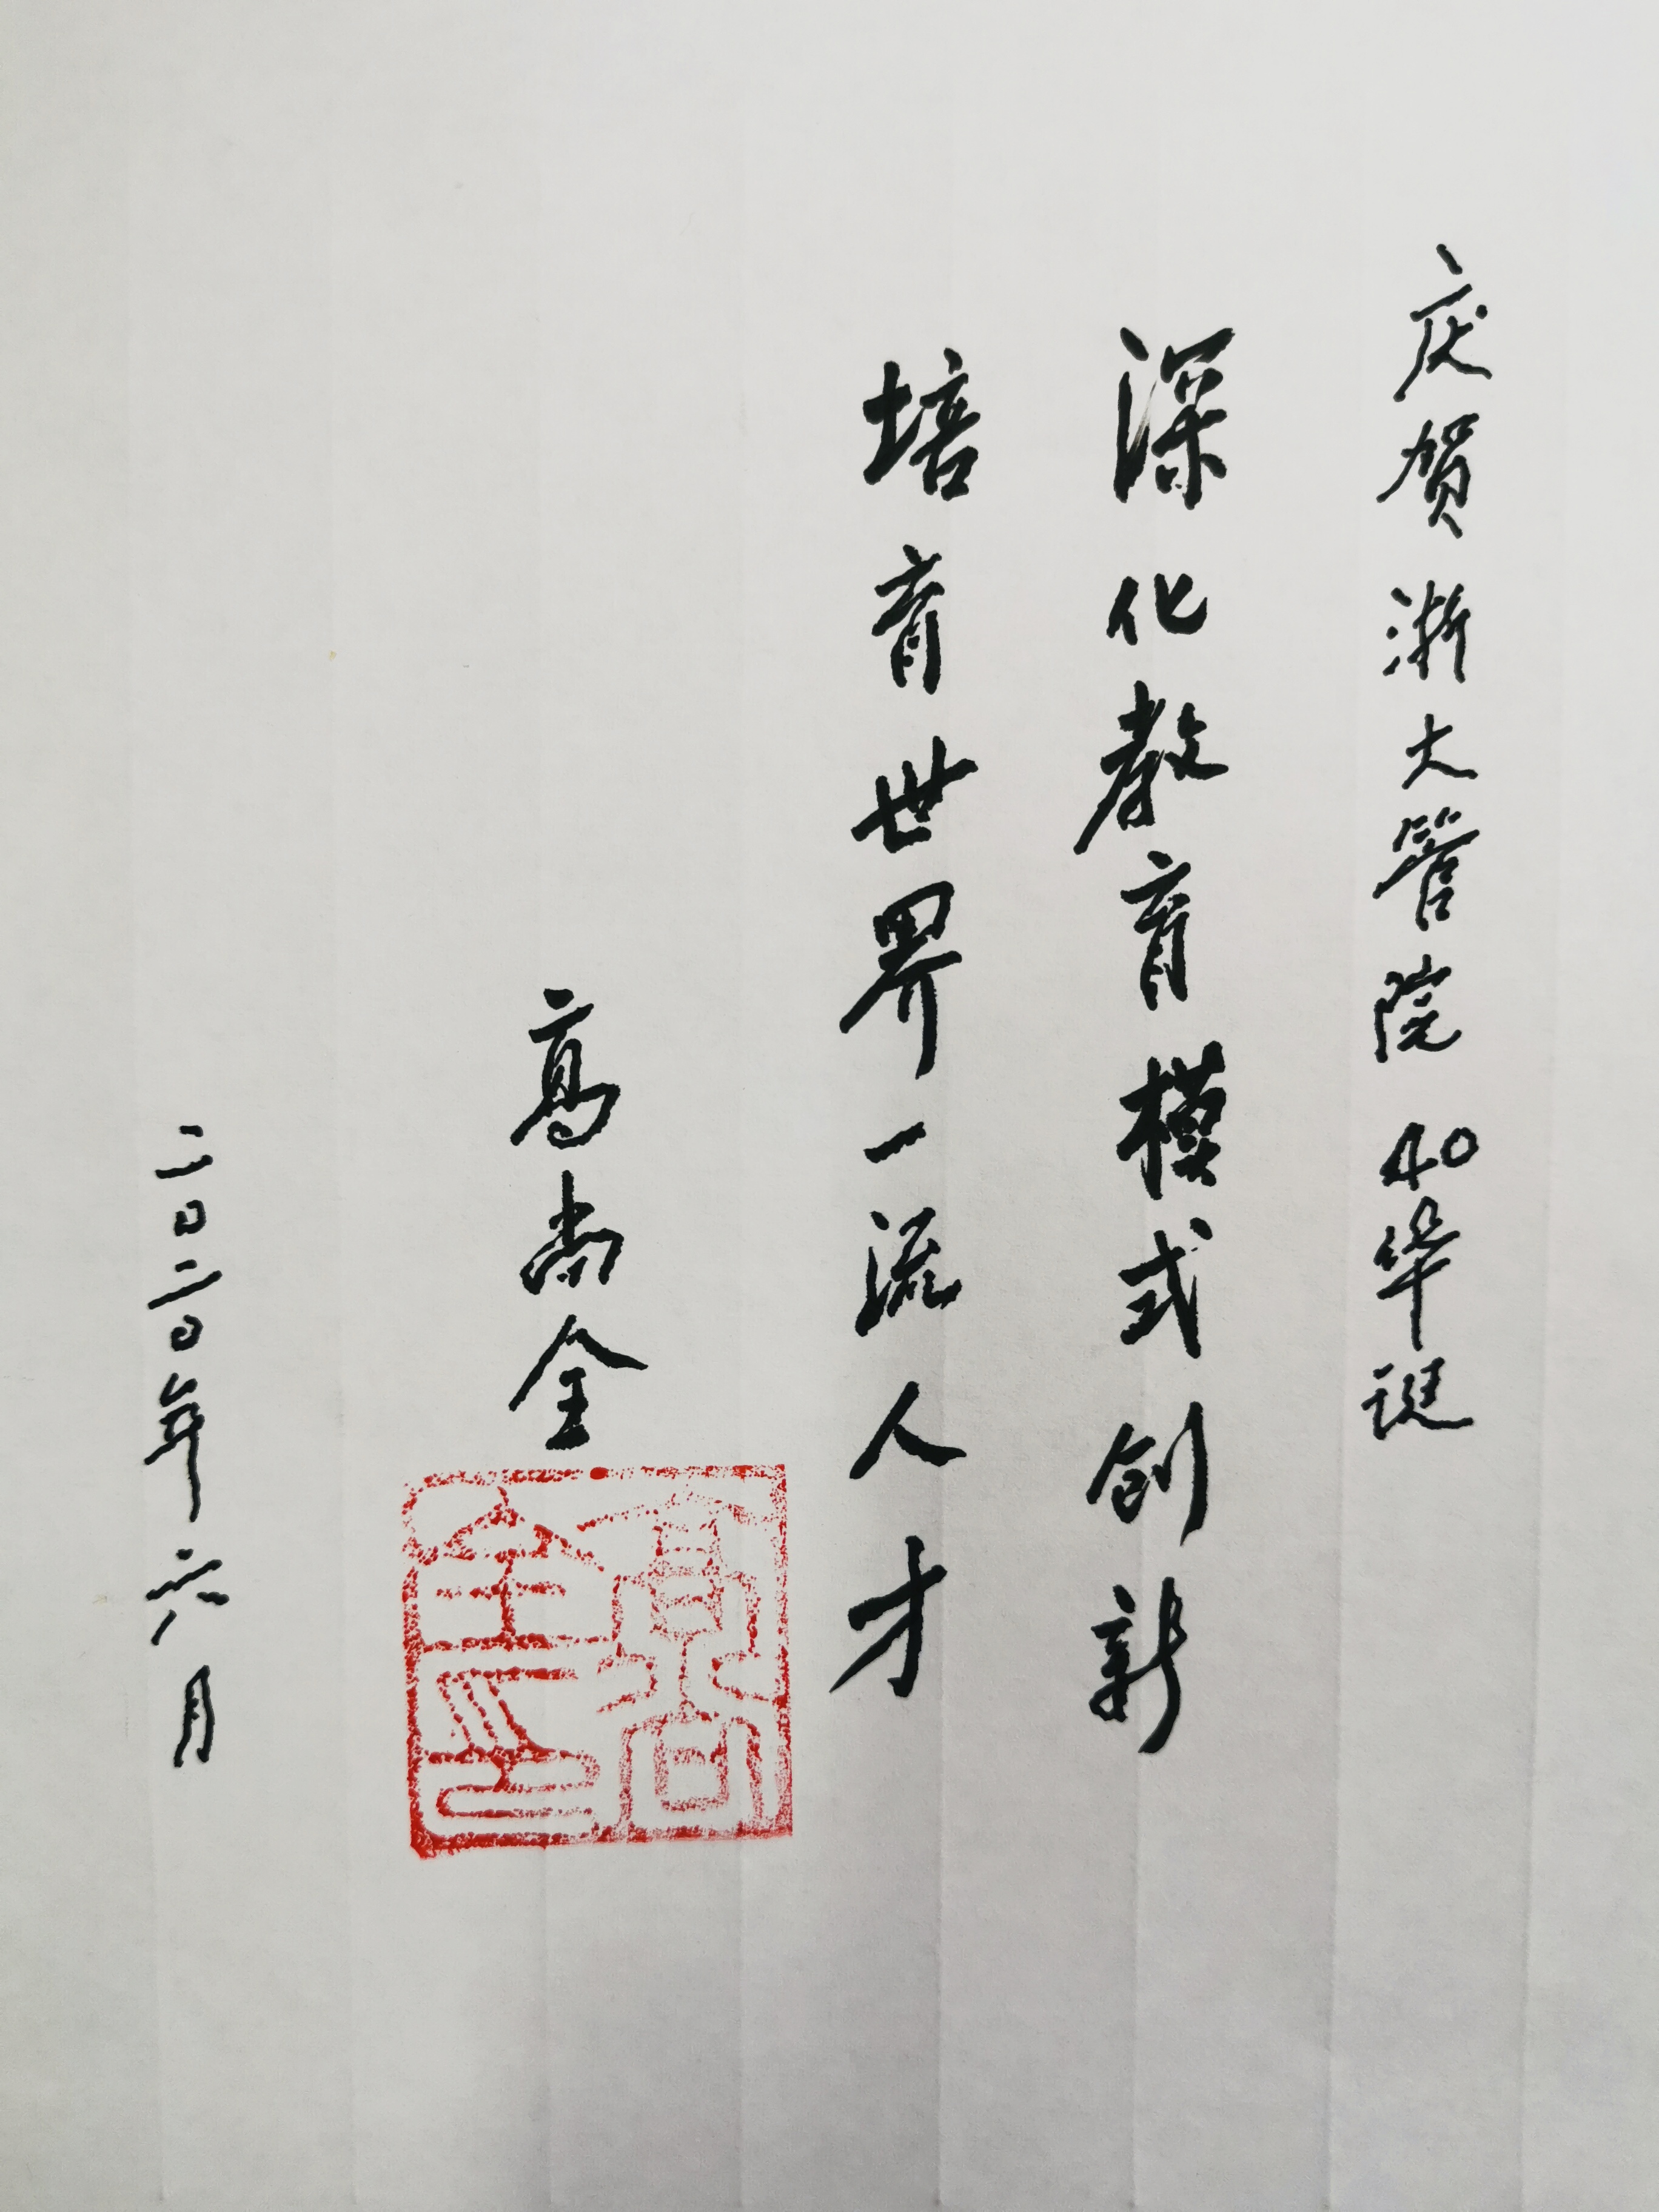 庆贺浙大管院40华诞
深化教育模式创新
培育世界一流人才
高尚全
高尚全印
二〇二〇年六月